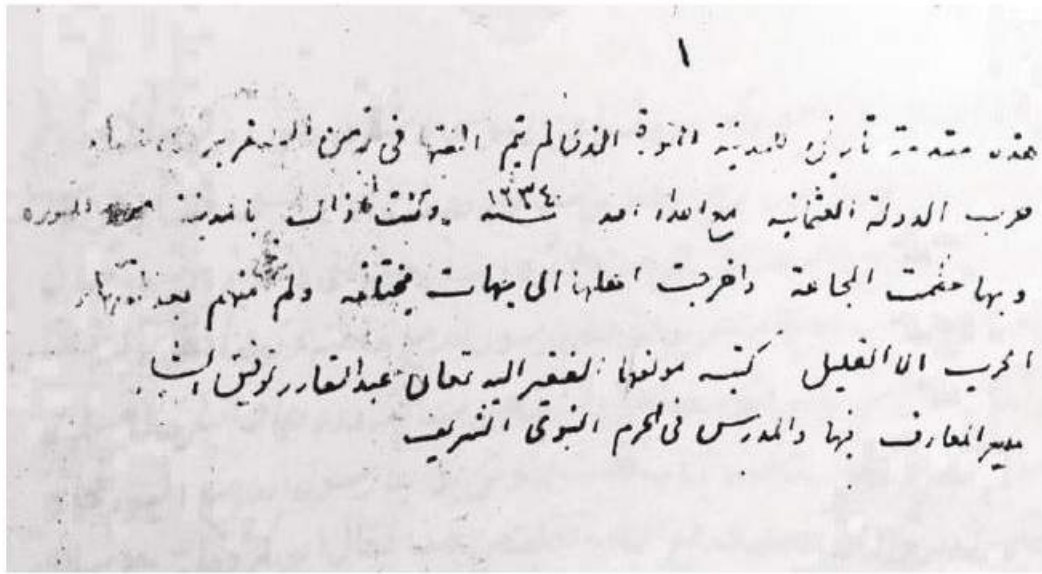 ١
هذه مقدمة تاريخ للمدينة المنورة الذى لم يتم الفتها فى زمن
حرب الدولة العثمانية مع اعداء سنة ١٣٣٤ وكنت اذاك بالمدينة المنوره
وبها عظمت المجاعة واخرجت اهلها الى جهات مختلفه ولم منهم بعد
الحرب الا القليل كتبه مولفها الفقير اليه تعالى عبد القادر توفيق
مدير المعارف بها والمدرس فى الحرم النبوى الشريف